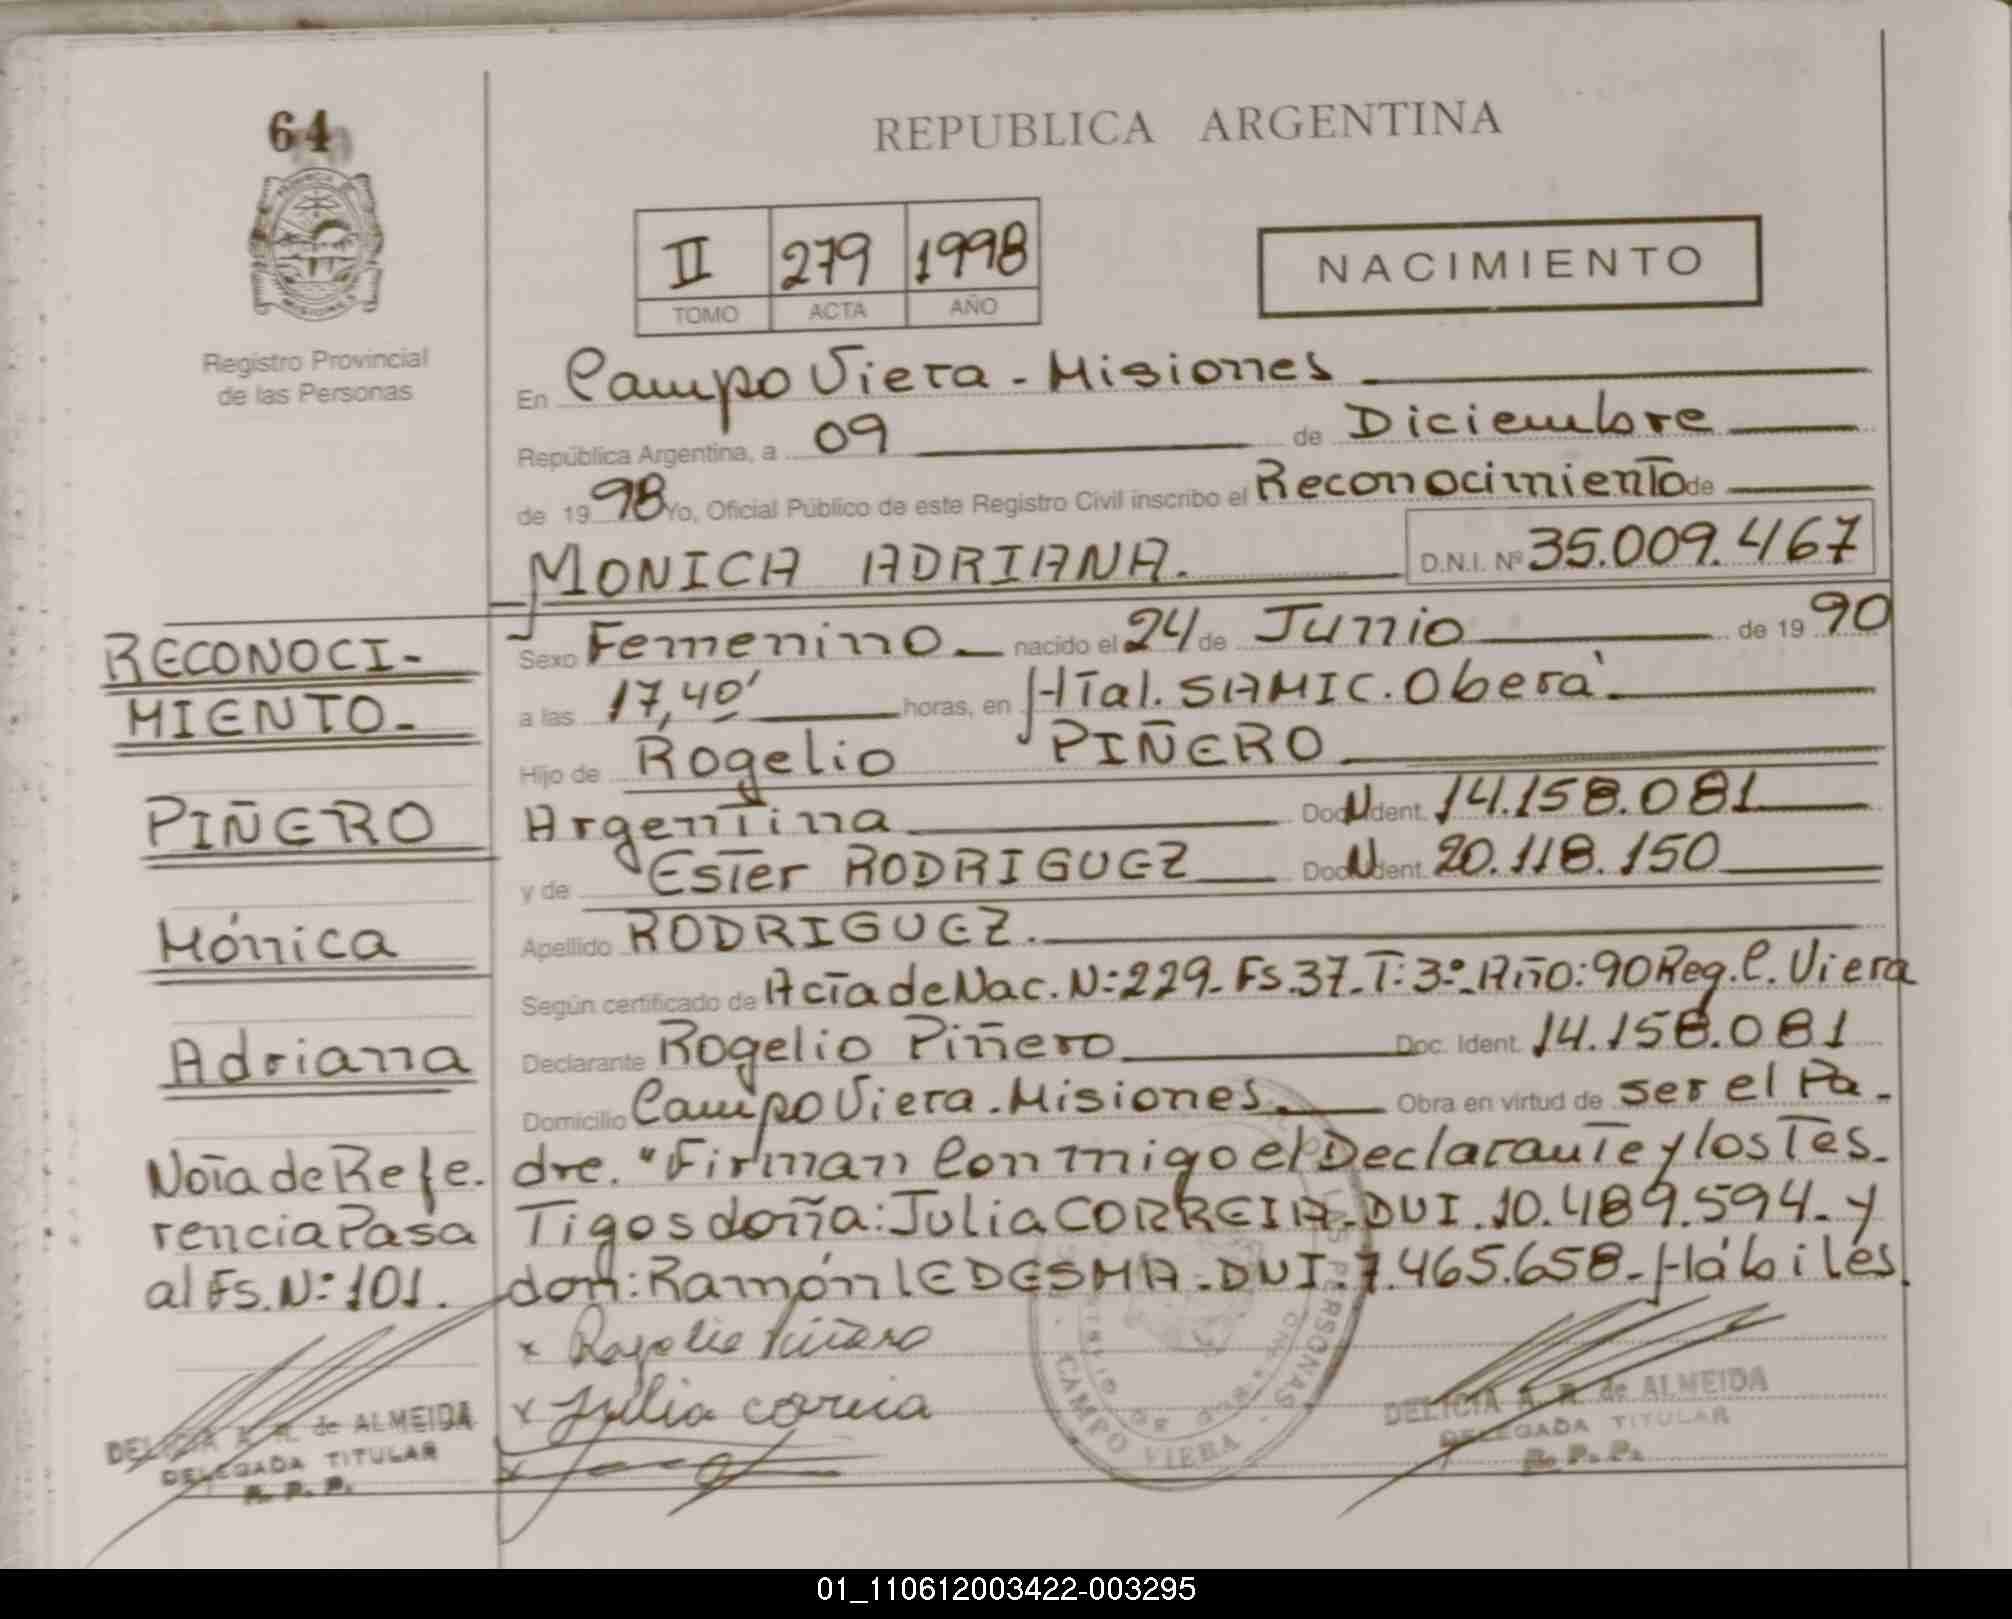 64
REPUBLICA ARGENTINA
II 279 1998
TOMO ACTA AÑO
NACIMIENTO
Registro Provincial
de las Personas
En Campo Viera - Misiones
República Argentina, a 09 de Diciembre
de 19 98 Yo, Oficial Público de este Registro Civil inscribo el Reconocimiento de
MONICA ADRIANA. D.N.I. Nº 35.009.467
Sexo Femenino nacido el 24 de Junio de 19 90
a las 17,40' horas, en Htal. SAMIC. Oberá
Hijo de Rogelio PIÑERO
Argentina Doc. Ident. 14.158.081
y de Ester RODRIGUEZ Doc. Ident. 20.118.150
Apellido RODRIGUEZ.
Según certificado de Acta de Nac. N:229- Fs.37- T:3º- Año:90 Reg. C. Viera
Declarante Rogelio Piñero Doc. Ident. 14.158.081
Domicilio Campo Viera - Misiones. Obra en virtud de ser el Pa-
dre. "Firman Conmigo el Declarante y los Tes-
Tigos doña: Julia CORREIA - DUI. 10.489.594 - y
don: Ramón LEDESMA - DUI. 7.465.658 - Hábiles
x Rogelio Piñero
x Julia correia
x
RECONOCI-
MIENTO-
PIÑERO
Mónica
Adriana
Nota de Refe-
rencia Pasa
al Fs. N: 101.
DELICIA A. R. de ALMEIDA
DELEGADA TITULAR
R. P. P.
CAMPO VIERA
LAS PERSONAS
DELICIA A. R. de ALMEIDA
DELEGADA TITULAR
R. P. P.
01_110612003422-003295